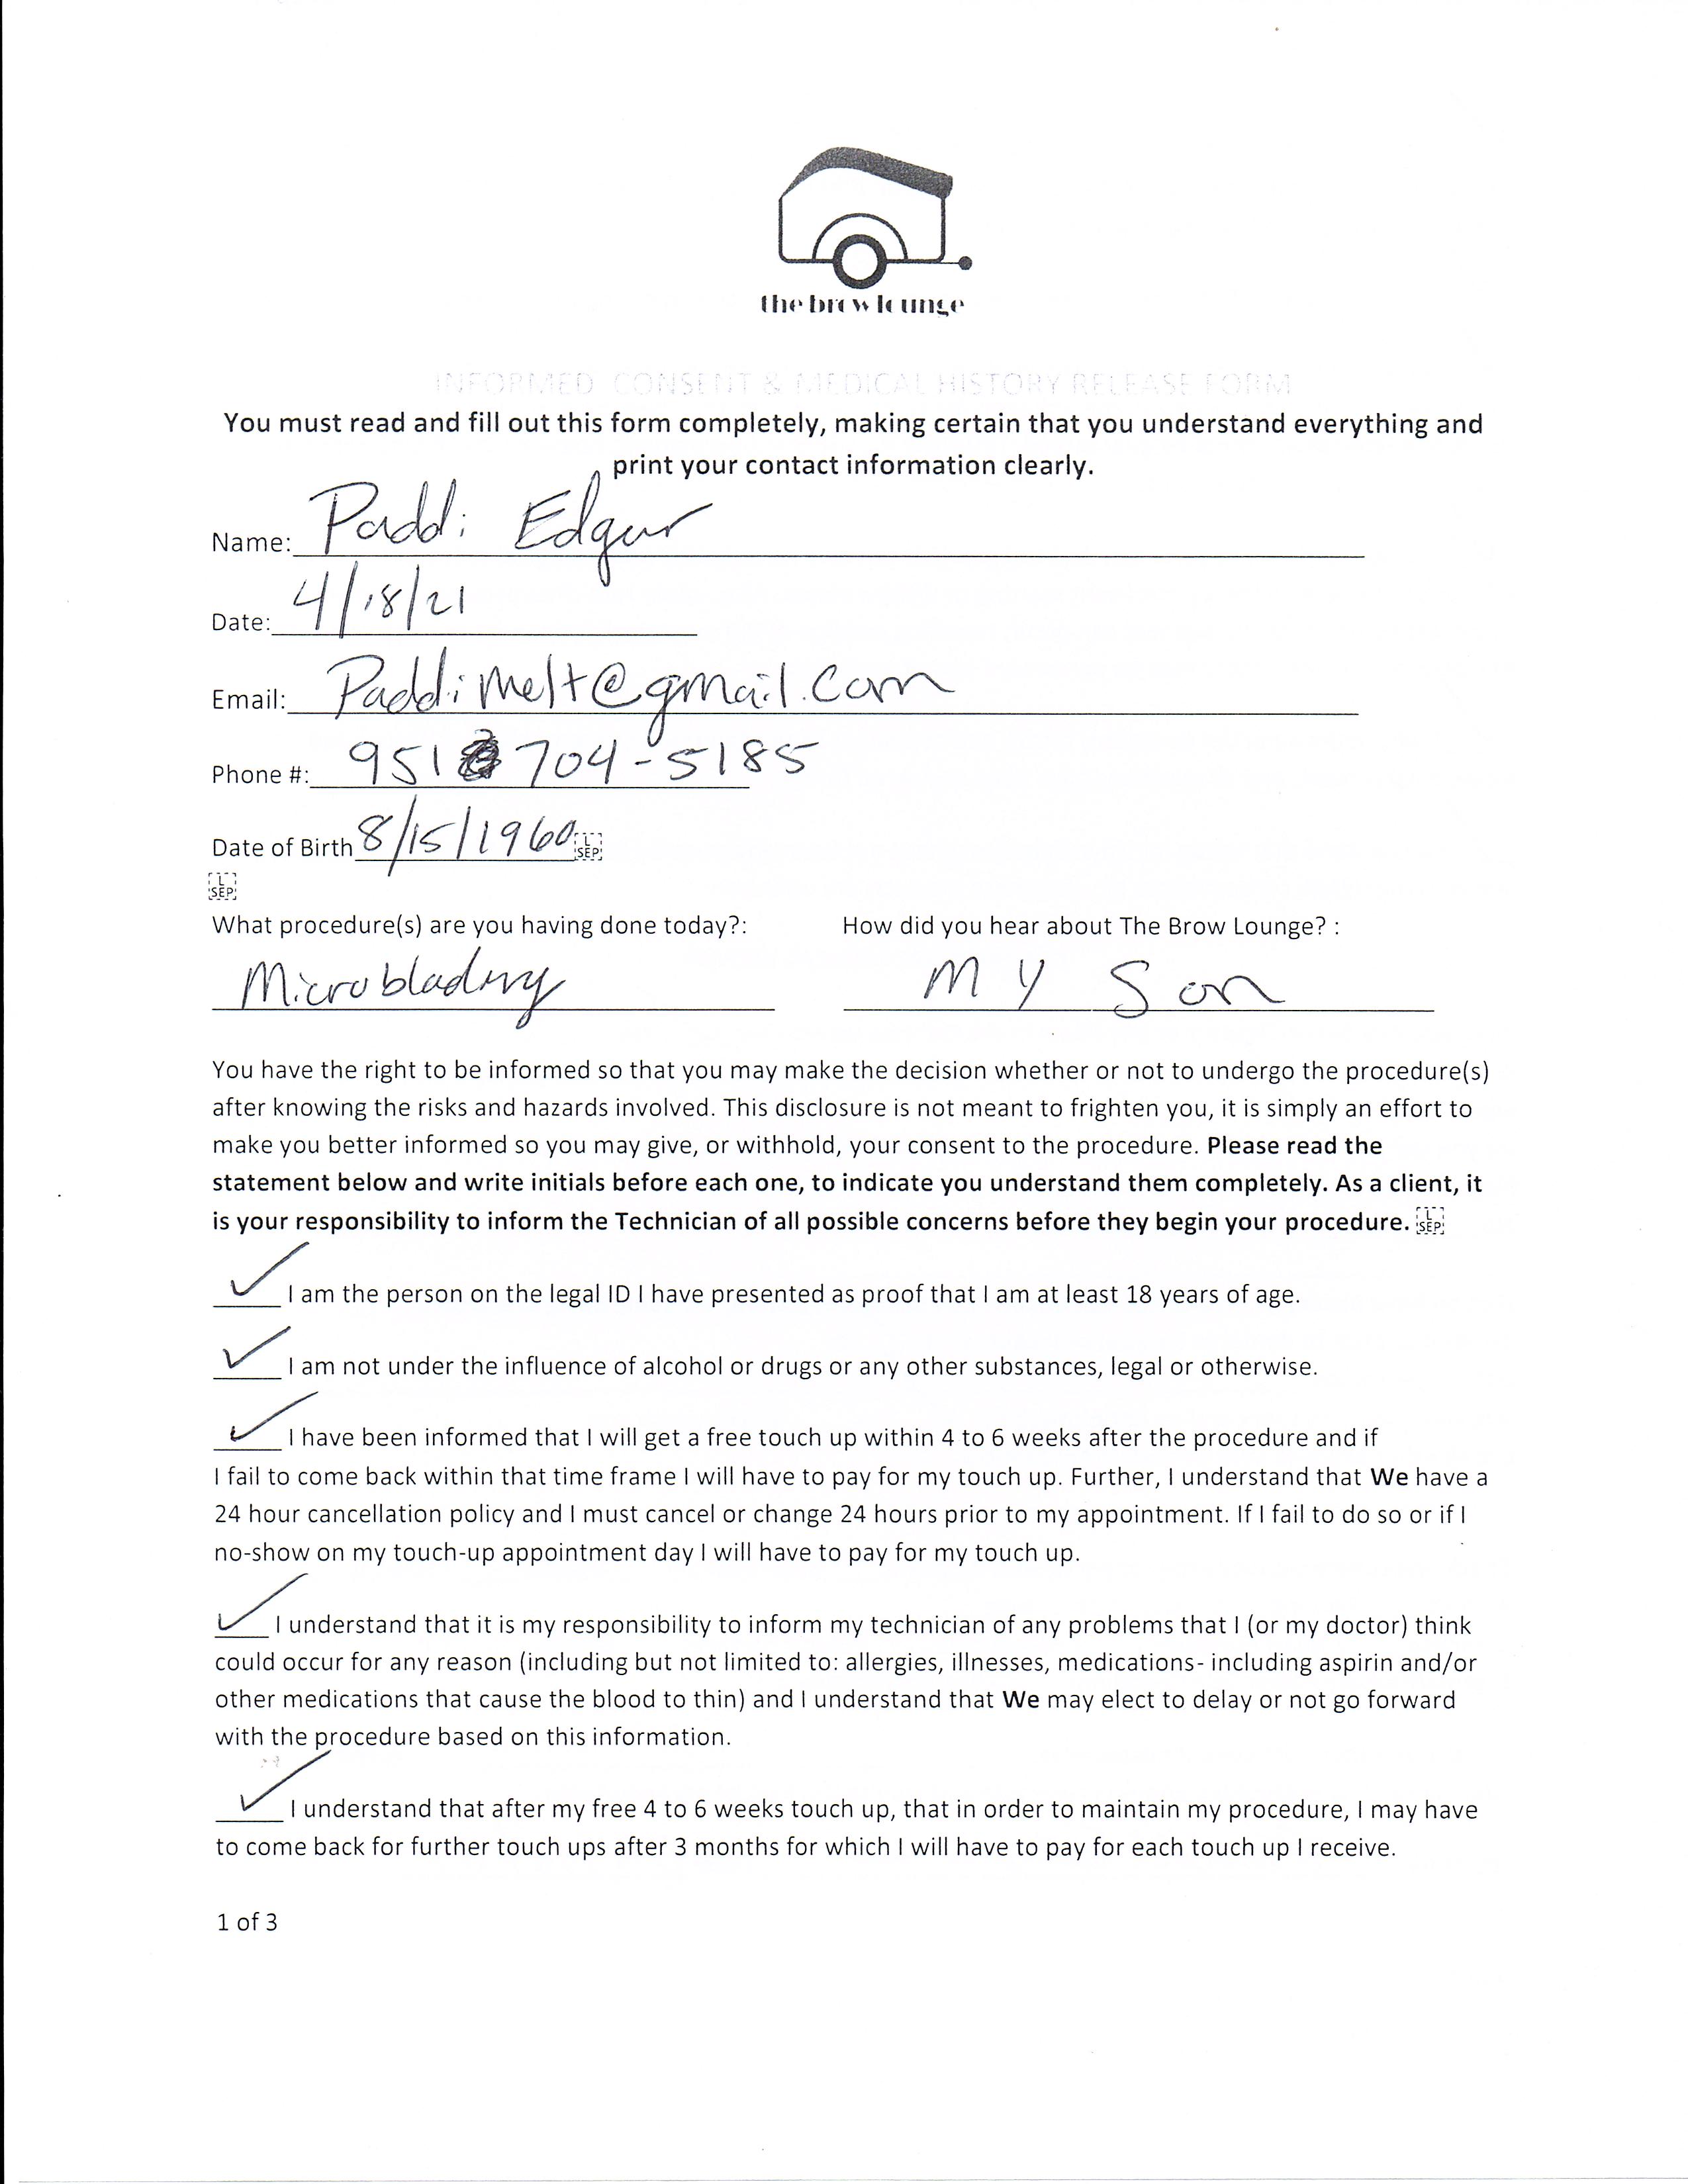 the brow lounge
INFORMED CONSENT & MEDICAL HISTORY RELEASE FORM
You must read and fill out this form completely, making certain that you understand everything and
print your contact information clearly.
Name: Paddi Edgar
Date: 4/18/21
Email: Paddimelt@gmail.com
Phone #: 951 704-5185
Date of Birth 8/15/1960 L SEP
L SEP
What procedure(s) are you having done today?: How did you hear about The Brow Lounge? :
Microblading MY Son
You have the right to be informed so that you may make the decision whether or not to undergo the procedure(s)
after knowing the risks and hazards involved. This disclosure is not meant to frighten you, it is simply an effort to
make you better informed so you may give, or withhold, your consent to the procedure. Please read the
statement below and write initials before each one, to indicate you understand them completely. As a client, it
is your responsibility to inform the Technician of all possible concerns before they begin your procedure. L SEP
✓ I am the person on the legal ID I have presented as proof that I am at least 18 years of age.
✓ I am not under the influence of alcohol or drugs or any other substances, legal or otherwise.
✓ I have been informed that I will get a free touch up within 4 to 6 weeks after the procedure and if
I fail to come back within that time frame I will have to pay for my touch up. Further, I understand that We have a
24 hour cancellation policy and I must cancel or change 24 hours prior to my appointment. If I fail to do so or if I
no-show on my touch-up appointment day I will have to pay for my touch up.
✓ I understand that it is my responsibility to inform my technician of any problems that I (or my doctor) think
could occur for any reason (including but not limited to: allergies, illnesses, medications- including aspirin and/or
other medications that cause the blood to thin) and I understand that We may elect to delay or not go forward
with the procedure based on this information.
✓ I understand that after my free 4 to 6 weeks touch up, that in order to maintain my procedure, I may have
to come back for further touch ups after 3 months for which I will have to pay for each touch up I receive.
1 of 3